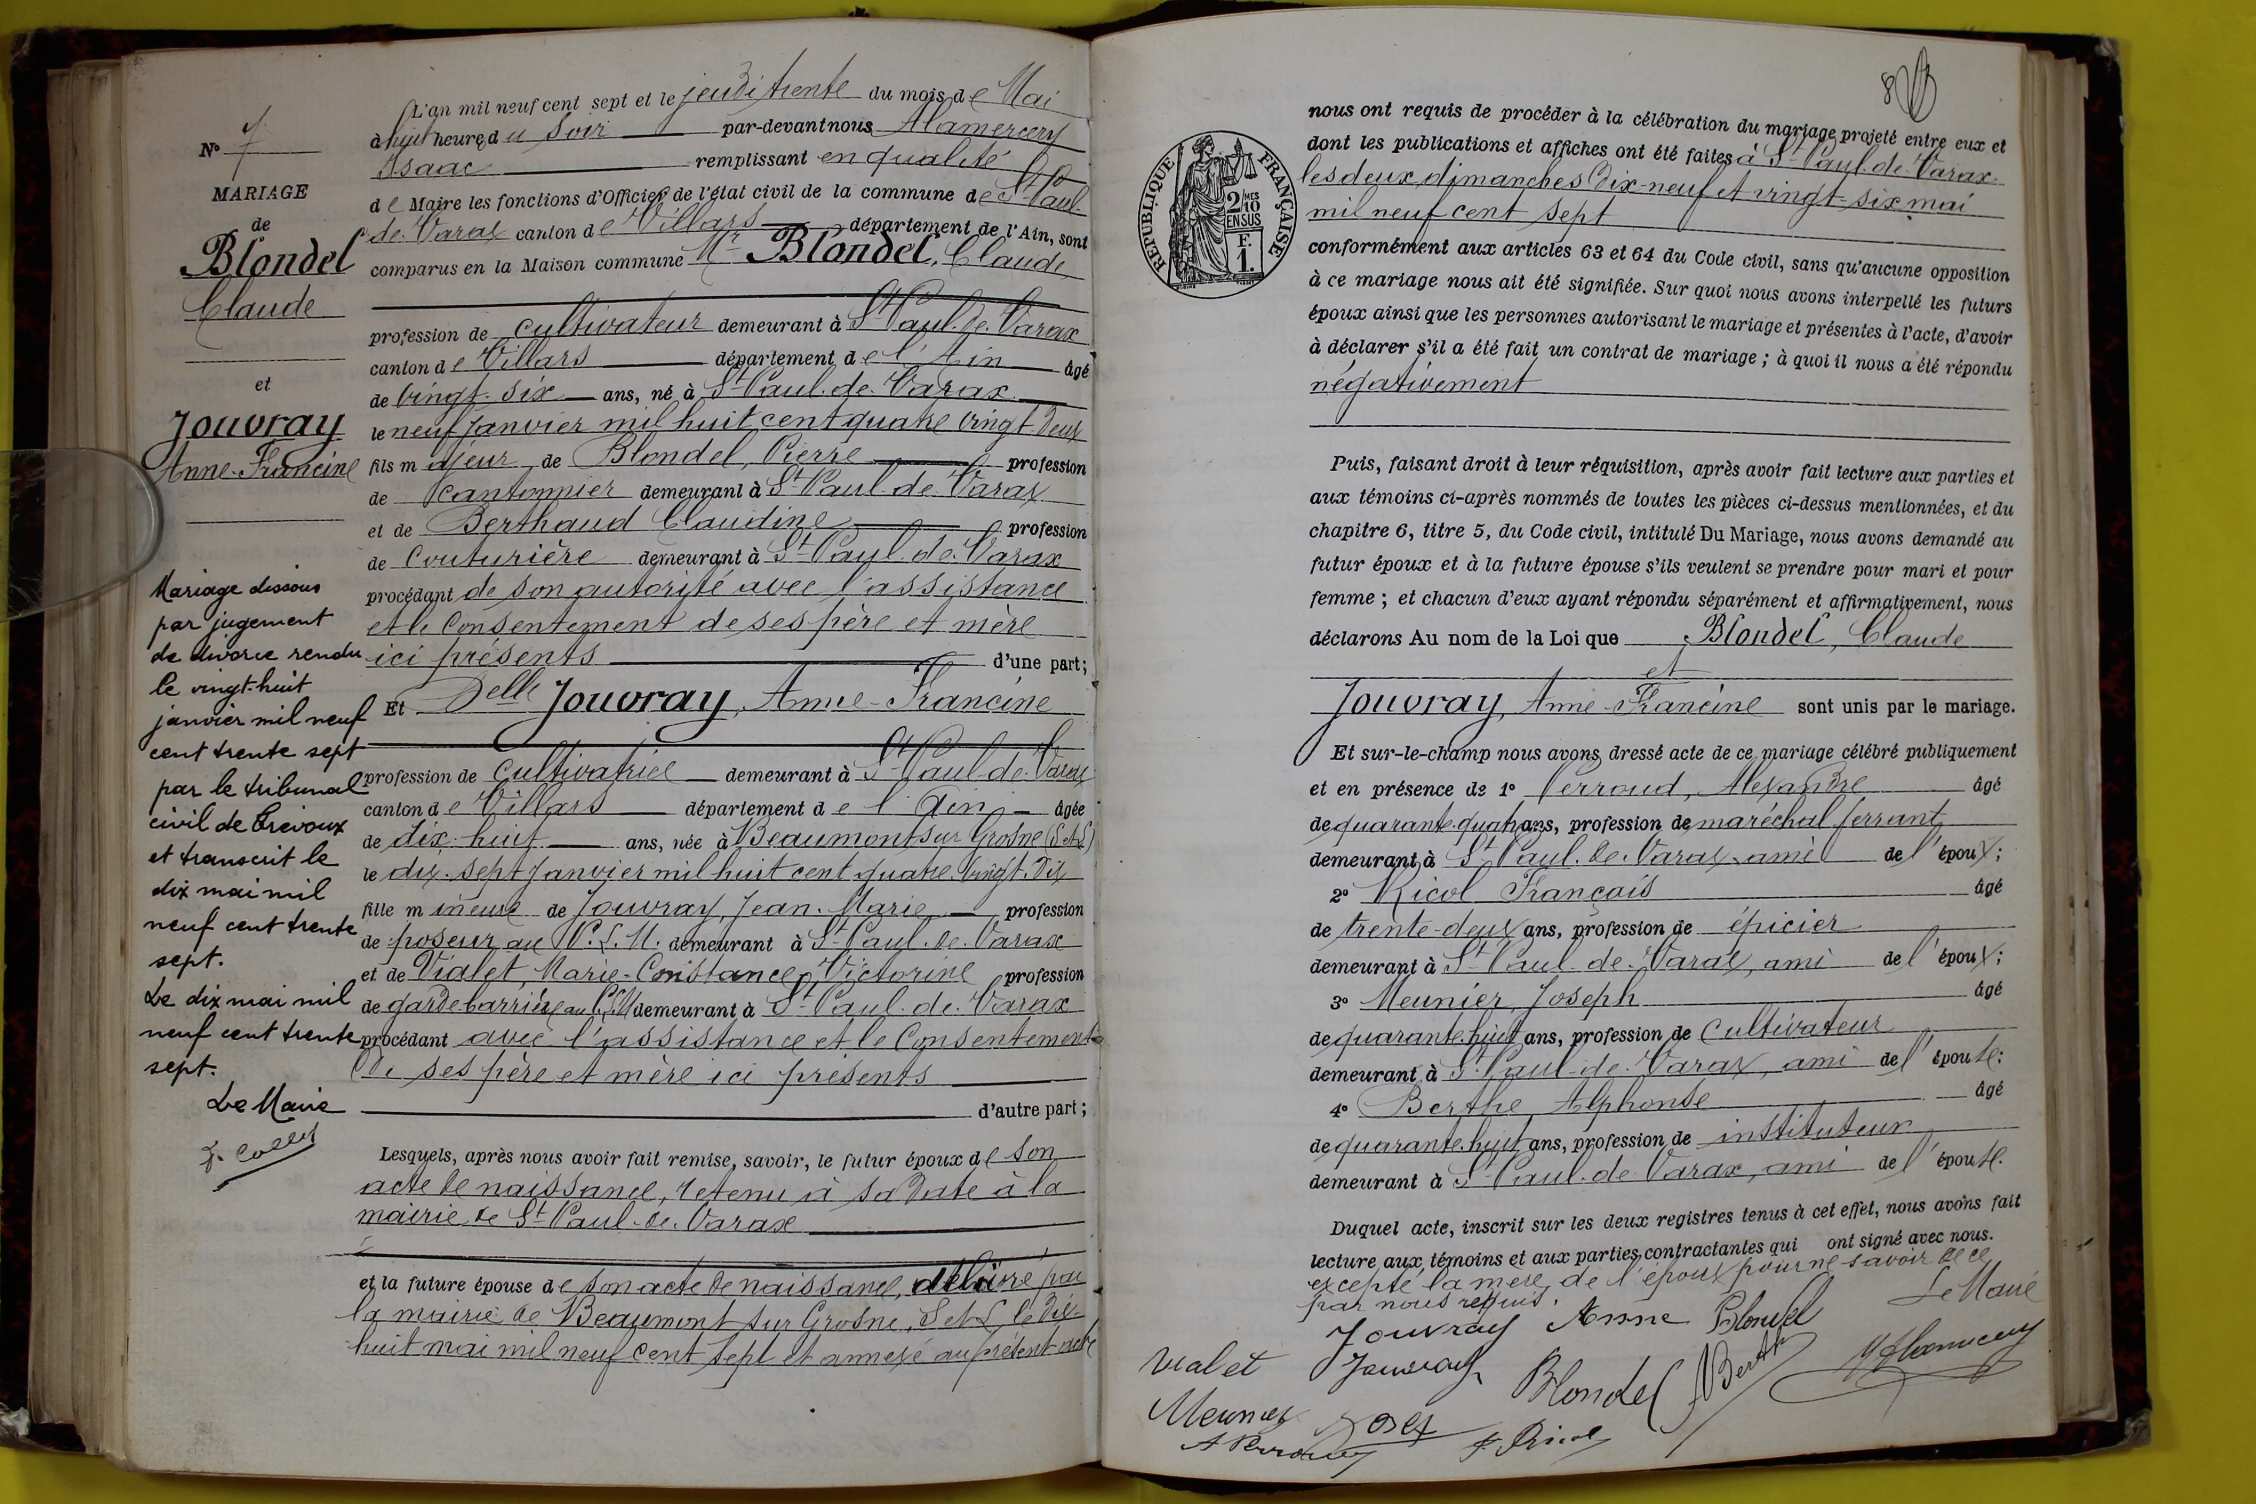 N° 7
MARIAGE
de
Blondel
Claude
et
Jouvray
Anne-Francine
Mariage dissous
par jugement
de divorce rendu
le vingt-huit
janvier mil neuf
cent trente sept
par le tribunal
civil de Trévoux
et transcrit le
dix mai mil
neuf cent trente
sept.
Le dix mai mil
neuf cent trente
sept.
Le Maire
L'an mil neuf cent sept et le jeudi trente du mois de Mai
à huit heures du soir par-devant nous Alamercery
Isaac remplissant en qualité
de Maire les fonctions d'Officier de l'état civil de la commune de St Paul-
de-Varax canton de Villars département de l'Ain, sont
comparus en la Maison commune Mr Blondel, Claude
profession de cultivateur demeurant à St Paul-de-Varax
canton de Villars département de l'Ain âgé
de vingt-six ans, né à St Paul-de-Varax
le neuf janvier mil huit cent quatre vingt deux
fils majeur de Blondel, Pierre profession
de cantonnier demeurant à St Paul de Varax
et de Berthaud Claudine profession
de couturière demeurant à St Paul-de-Varax
procédant de son autorité avec l'assistance
et le consentement de ses père et mère
ici présents d'une part;
Et Delle Jouvray, Anne-Francine
profession de cultivatrice demeurant à St Paul-de-Varax
canton de Villars département de l'Ain âgée
de dix-huit ans, née à Beaumont sur Grosne (S et L)
le dix-sept janvier mil huit cent quatre vingt-dix
fille mineure de Jouvray, Jean-Marie profession
de poseur au P.L.M. demeurant à St Paul-de-Varax
et de Vialet, Marie-Constance, Victorine profession
de garde-barrière au P.L.M demeurant à St Paul-de-Varax
procédant avec l'assistance et le consentement
de ses père et mère ici présents
d'autre part;
Lesquels, après nous avoir fait remise, savoir, le futur époux de son
acte de naissance, retenu à sa date à la
mairie de St Paul-de-Varax
et la future épouse de son acte de naissance, délivré par
la mairie de Beaumont sur Grosne, S et L, le dix-
huit mai mil neuf cent sept et annexé au présent acte
8
RÉPUBLIQUE FRANÇAISE
2/10 MES
EN SUS
F.
1.
nous ont requis de procéder à la célébration du mariage projeté entre eux et
dont les publications et affiches ont été faites à St Paul-de-Varax
les deux dimanches dix-neuf et vingt-six mai
mil neuf cent sept
conformément aux articles 63 et 64 du Code civil, sans qu'aucune opposition
à ce mariage nous ait été signifiée. Sur quoi nous avons interpellé les futurs
époux ainsi que les personnes autorisant le mariage et présentes à l'acte, d'avoir
à déclarer s'il a été fait un contrat de mariage; à quoi il nous a été répondu
négativement
Puis, faisant droit à leur réquisition, après avoir fait lecture aux parties et
aux témoins ci-après nommés de toutes les pièces ci-dessus mentionnées, et du
chapitre 6, titre 5, du Code civil, intitulé Du Mariage, nous avons demandé au
futur époux et à la future épouse s'ils veulent se prendre pour mari et pour
femme; et chacun d'eux ayant répondu séparément et affirmativement, nous
déclarons Au nom de la Loi que Blondel, Claude
et
Jouvray, Anne-Francine sont unis par le mariage.
Et sur-le-champ nous avons dressé acte de ce mariage célébré publiquement
et en présence de 1° Perroud, Alexandre âgé
de quarante-quatre ans, profession de maréchal ferrant
demeurant à St Paul-de-Varax, ami de l'époux;
2° Ricol François âgé
de trente-deux ans, profession de épicier
demeurant à St Paul-de-Varax, ami de l'époux;
3° Meunier, Joseph âgé
de quarante-huit ans, profession de cultivateur
demeurant à St Paul-de-Varax, ami de l'épouse;
4° Berthe, Alphonse âgé
de quarante-huit ans, profession de instituteur
demeurant à St Paul-de-Varax, ami de l'épouse.
Duquel acte, inscrit sur les deux registres tenus à cet effet, nous avons fait
lecture aux témoins et aux parties contractantes qui ont signé avec nous.
excepté la mère de l'époux pour ne savoir de ce
par nous requis.
Le Maire
Jouvray Anne Blondel
Vialet Jouvray Blondel Berthe
Meunier